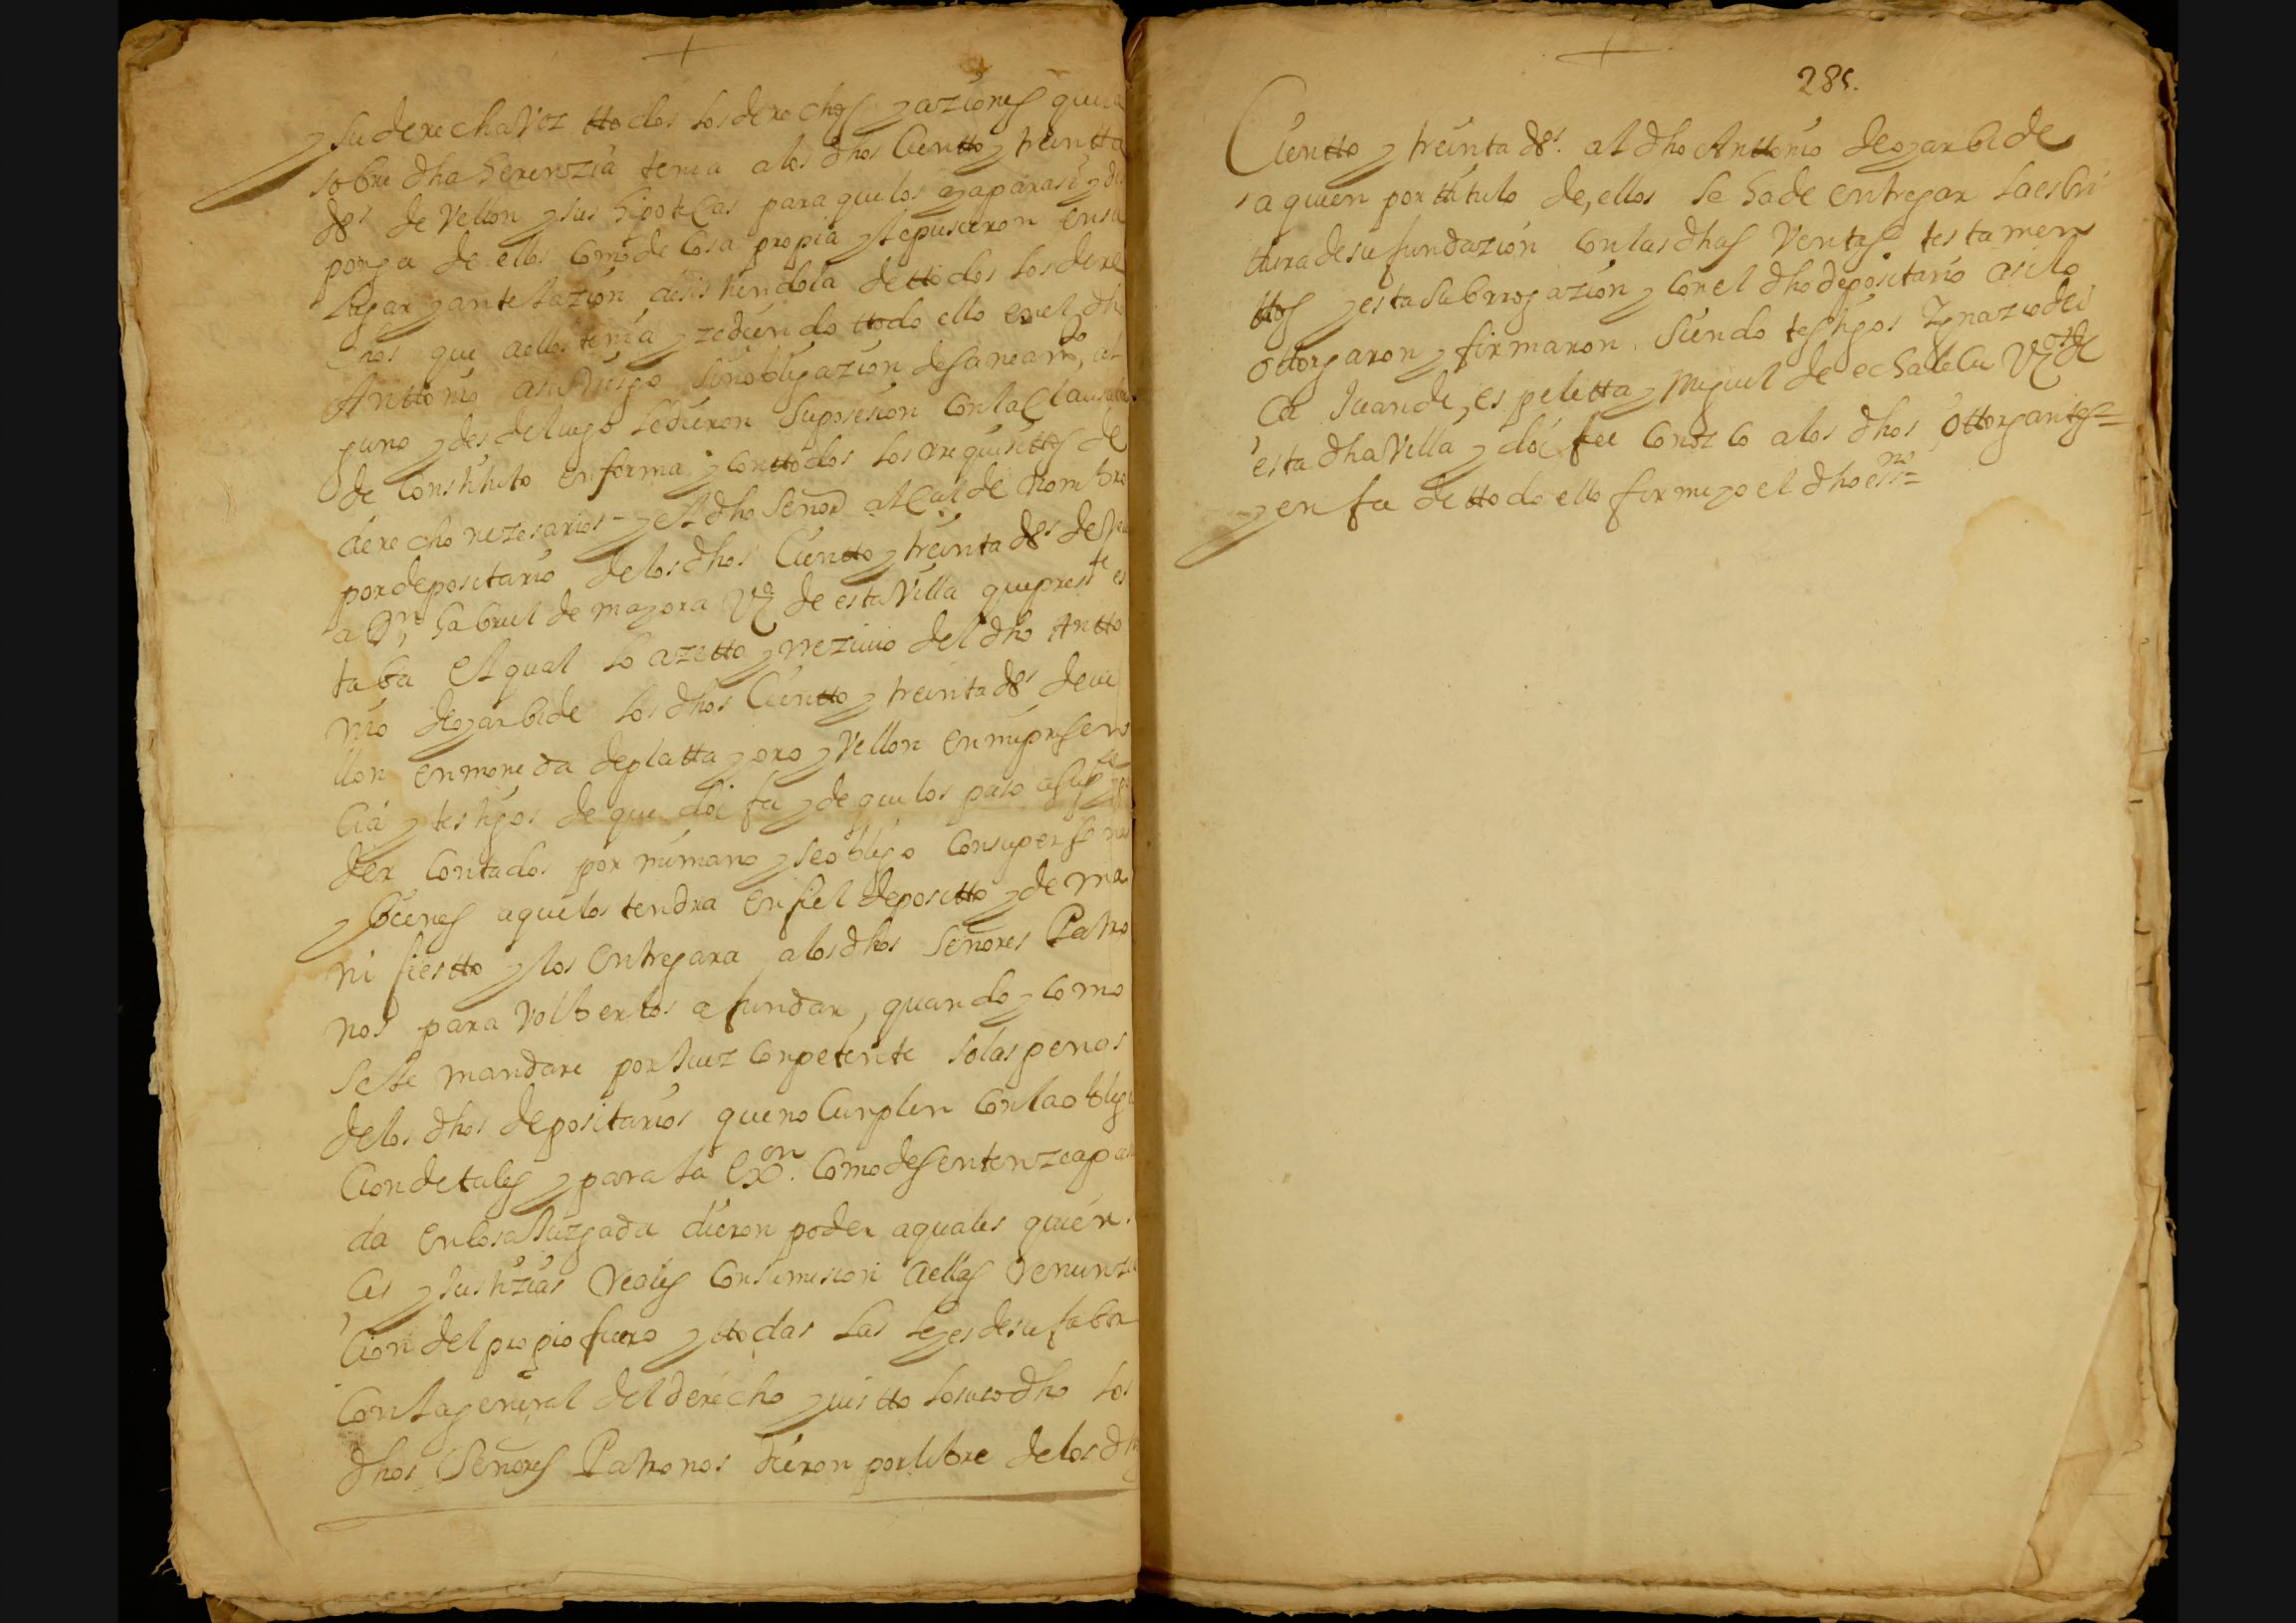 y su derecha Voz ttodos los derechos y aziones que
sobre dha herenzia tenia a los dhos Cientto y treintta
ds de Vellon y sus hipotecas para que los aya para si y dis
ponga de ellos como de Cosa propia y le pusieron en su
lugar y antelazion desistiendola de ttodos los dere
chos que a ellos tenia y zediendo ttodo ello en el dho
Anttonio a su Riesgo sin obligazion de saneamto, al
guno y desde luego le dieron su posesion con la Clausula
de Constituto en forma y con ttodos los Requisittos de
derecho nezesarios - y el dho Señor alcalde nombro
por depositario de los dhos Cientto y treinta ds de Ve
a Dn, Gabriel de mayora Vzo de esta Villa que preste es
taba El qual lo azetto y rrezivio del dho Antto
nio de oyarbide los dhos Cientto y treinta ds de ve
llon en moneda de platta y oro y Vellon en mi presen
cia y testigos de que doi fee y de que los paso a su po
der Contados por mi mano y se obligo con su persona
y bienes a que los tendra en fiel depositto y de ma
nifiestto y los entregara a los dhos Señores Patro
nos para Volberlos a fundar, quando y como
se le mandare por Juez Conpetente so las penas
de los dhos depositarios que no Cunplen con la obliga
cion de tales y para la exon. Como de sentenzia pasa
da en Cosa Juzgada dieron poder a quales quier
es y Justizias Reales con sumision a ellas Renunzia
cion del propio fuero y ttodas las leyes de su fabor
Con la general del derecho y vistto lo suso dho los
dhos Señores Patronos dieron por libre de los dhos
285.
Cientto y treinta ds. al dho Anttonio de oyarbide
a quien por titulo de, ellos se ha de entregar la escri
tura de su fundazion con las dhas Ventas testamen
ttos y esta Subrrogazion y con el dho depositario asi lo
ottorgaron y firmaron. Siendo testigos Ygnazio de
Ca Juan de, espeletta y Miguel de echalecu Vzos de
esta dha Villa y doi fee Conozco a los dhos Ottorgantes =
y en fee de ttodo ello firme yo el dho essno =